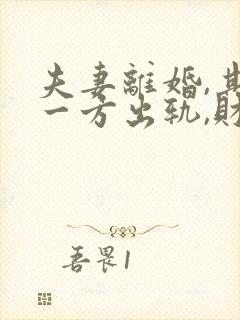 夫妻離婚,其
一方出轨,財
吾畏1